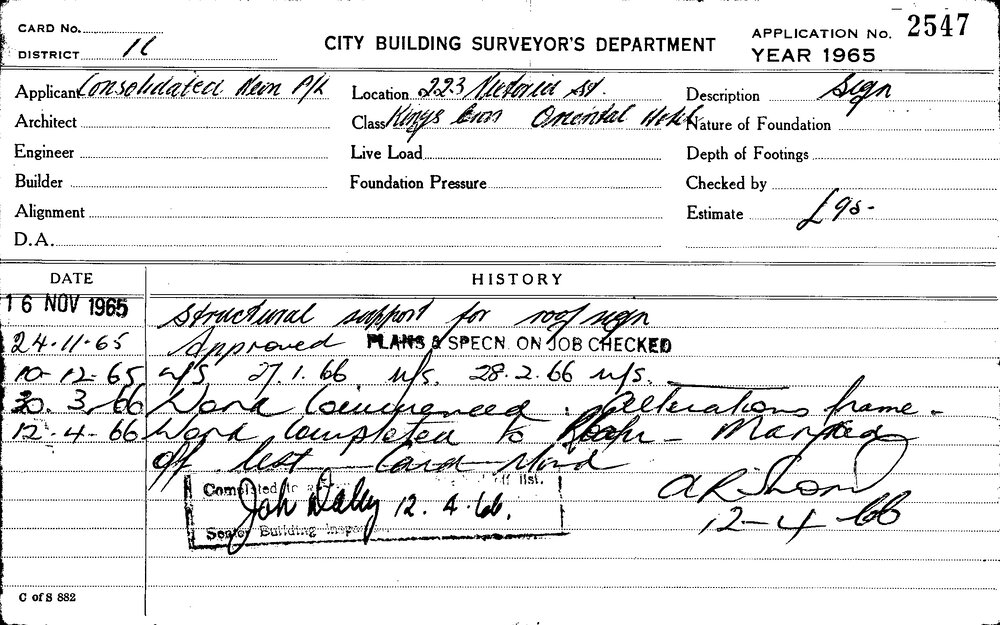 CARD No.
DISTRICT
CITY BUILDING SURVEYOR'S DEPARTMENT
APPLICATION No. 2547
YEAR 1965
Applicant Consolidated Neon P/L
Location 223 Victoria St.
Description Sign
Architect
Class Kings Cross Oriental Hotel
Nature of Foundation
Engineer
Live Load
Depth of Footings
Builder
Foundation Pressure
Checked by
Alignment
Estimate £95-
D.A.
DATE
HISTORY
16 NOV 1965 Structural support for roof sign
24-11-65 Approved PLANS & SPECN. ON JOB CHECKED
10-12-65 n/s 27.1.66. n/s. 28.2.66 n/s.
30.3.66 Work Commenced. Alterations frame-
12-4-66 Work Completed to
off list
Completed list.
12.4.66.
Senior Building Inspector
12-4-66
C of S 882